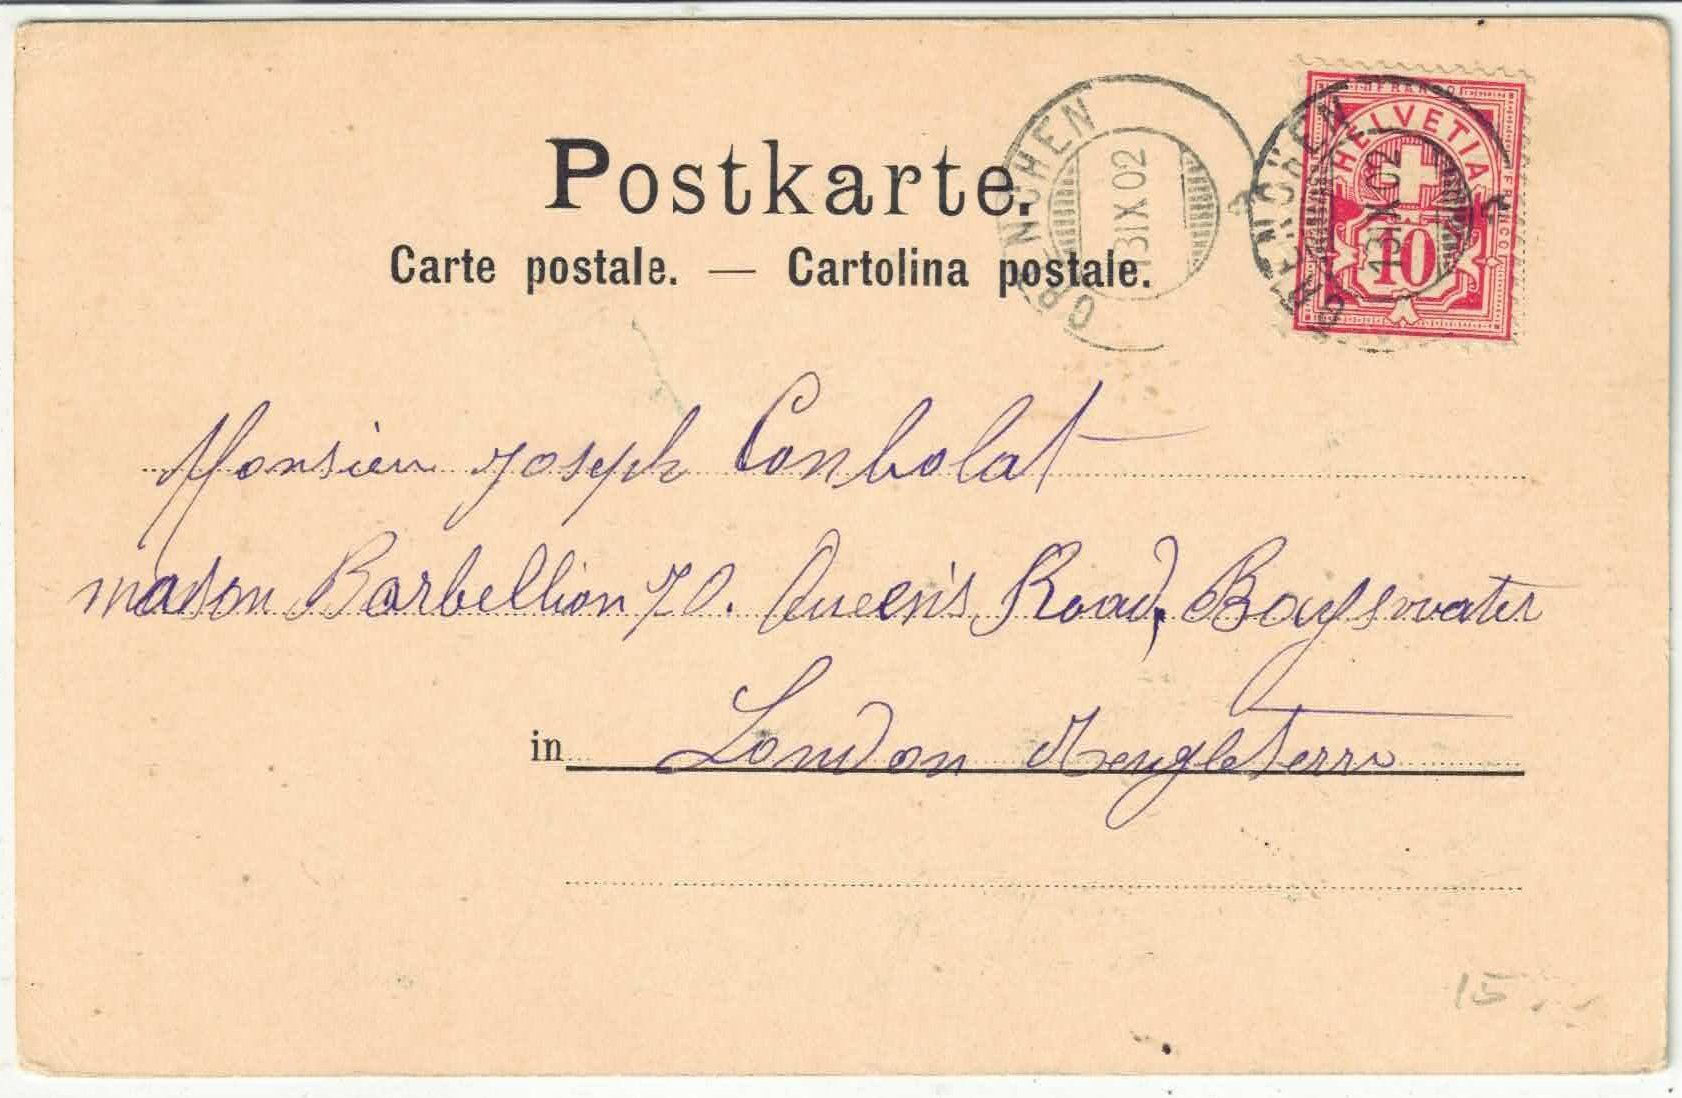 Postkarte.
Carte postale. — Cartolina postale.
GRENCHEN
13 IX 02
GRENCHEN
13 IX 02
FRANCO
HELVETIA
FRANCO
10
Monsieur Joseph Conbolat
maison Barbellion 70. Queen's Road, Bayswater
in London Angleterre
15